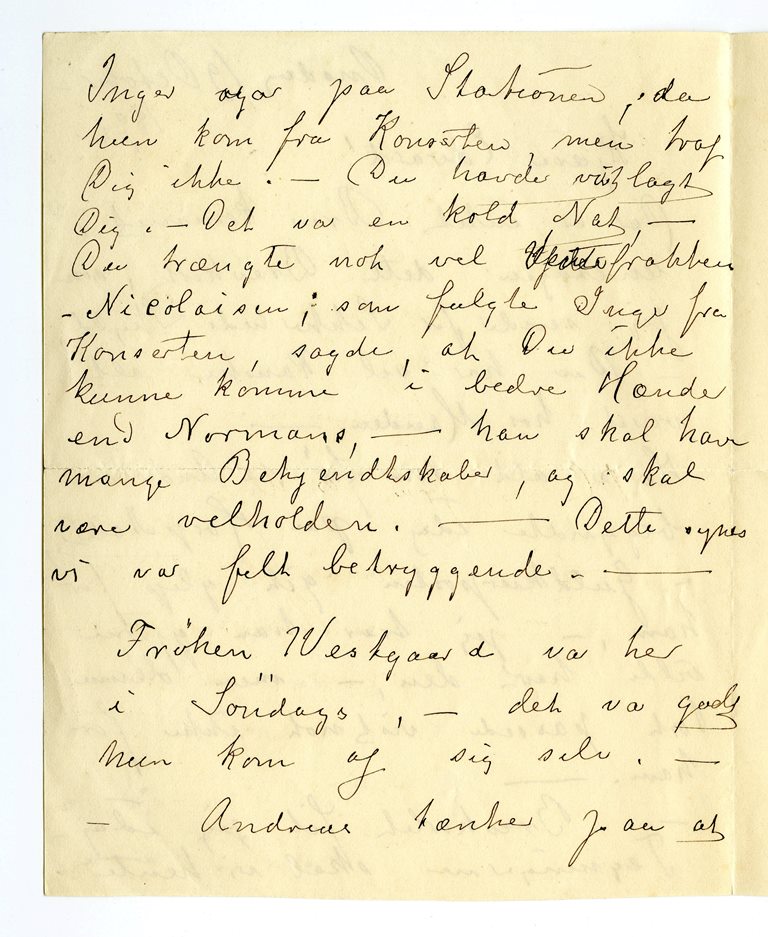 Inger var paa Stationen, da
hun kom fra Konserten, men traf
Dig ikke. — Du havde vist lagt
Dig. — Det va en kold Nat, —
Du trængte nok vel frakken
- Nicolaisen, som fulgte Inge fra
Konserten, sagde, at Du ikke
kunne komme i bedre Hænde
end Normans, — han skal have
mange Bekjendtskaber, og skal
være velholden. — Dette synes
vi var felt betryggende. —
Frøken Westgaard va her
i Søndags, — det va godt
hun kom af sig selv. —
— Andreas tænker paa at